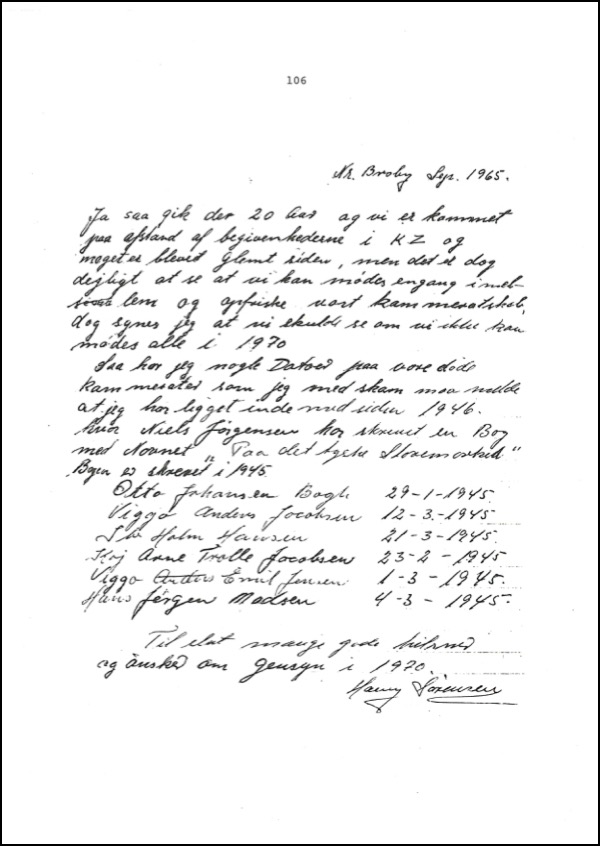 106
Nr. Broby Sep. 1965.
Ja saa gik der 20 Aar og vi er kommet
paa afstand af begivenhederne i KZ og
meget er blevet glemt siden, men det er dog
dejligt at se at vi kan mødes engang imel-
lem og opfriske vort kammeratskab,
dog synes jeg at vi skulde se om vi ikke kan
mødes alle i 1970
Saa har jeg nogle Datoer paa vore døde
kammerater som jeg med skam maa melde
at jeg har ligget inde med siden 1946.
hvor Niels Jørgensen har skrevet en Bog
med Navnet „Paa det tyske Slavemarked"
Bogen er skrevet i 1945.
Otto Johansen Bagh 29-1-1945.
Viggo Anders Jacobsen 12-3.-1945.
Ib Holm Hansen 21-3-1945.
Kaj Arne Trolle Jacobsen 23-2-1945
Viggo Anders Emil Jensen 1-3-1945.
Hans Jørgen Madsen 4-3-1945.
Til slut mange gode hilsner
og ønsker om Gensyn i 1970.
Harry Sørensen